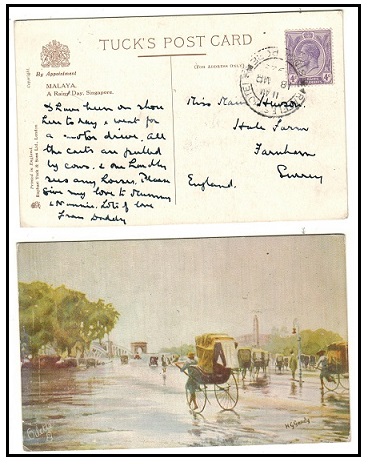 TUCK'S POST CARD
By Appointment
(FOR ADDRESS ONLY)
COPYRIGHT
MALAYA.
A Rainy Day, Singapore.
Printed in England.
Raphael Tuck & Sons Ltd., London
I have been on shore
here to day & went for
a motor drive. All
the carts are pulled
by cows. & one hardly
sees any horses. Please
give my love to Mummy
& Nannie. Lots of love
from Daddy
Miss
Hale Farm
Farnham
Surrey
England.